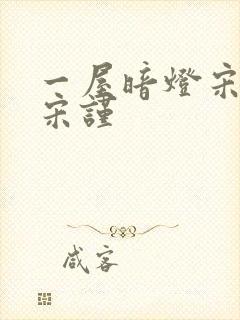 一屋暗燈宋
宋謹
咸客